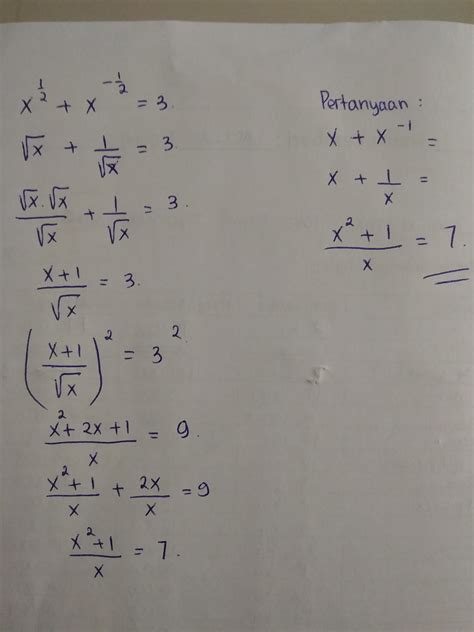 x^{1/2} + x^{-1/2} = 3.
√x + 1/√x = 3.
√x . √x/√x + 1/√x = 3.
x+1/√x = 3.
(x+1/√x)^2 = 3^2
x^2+2x+1/x = 9.
x^2+1/x + 2x/x = 9
x^2+1/x = 7.
Pertanyaan :
x + x^{-1} =
x + 1/x =
x^2+1/x = 7.